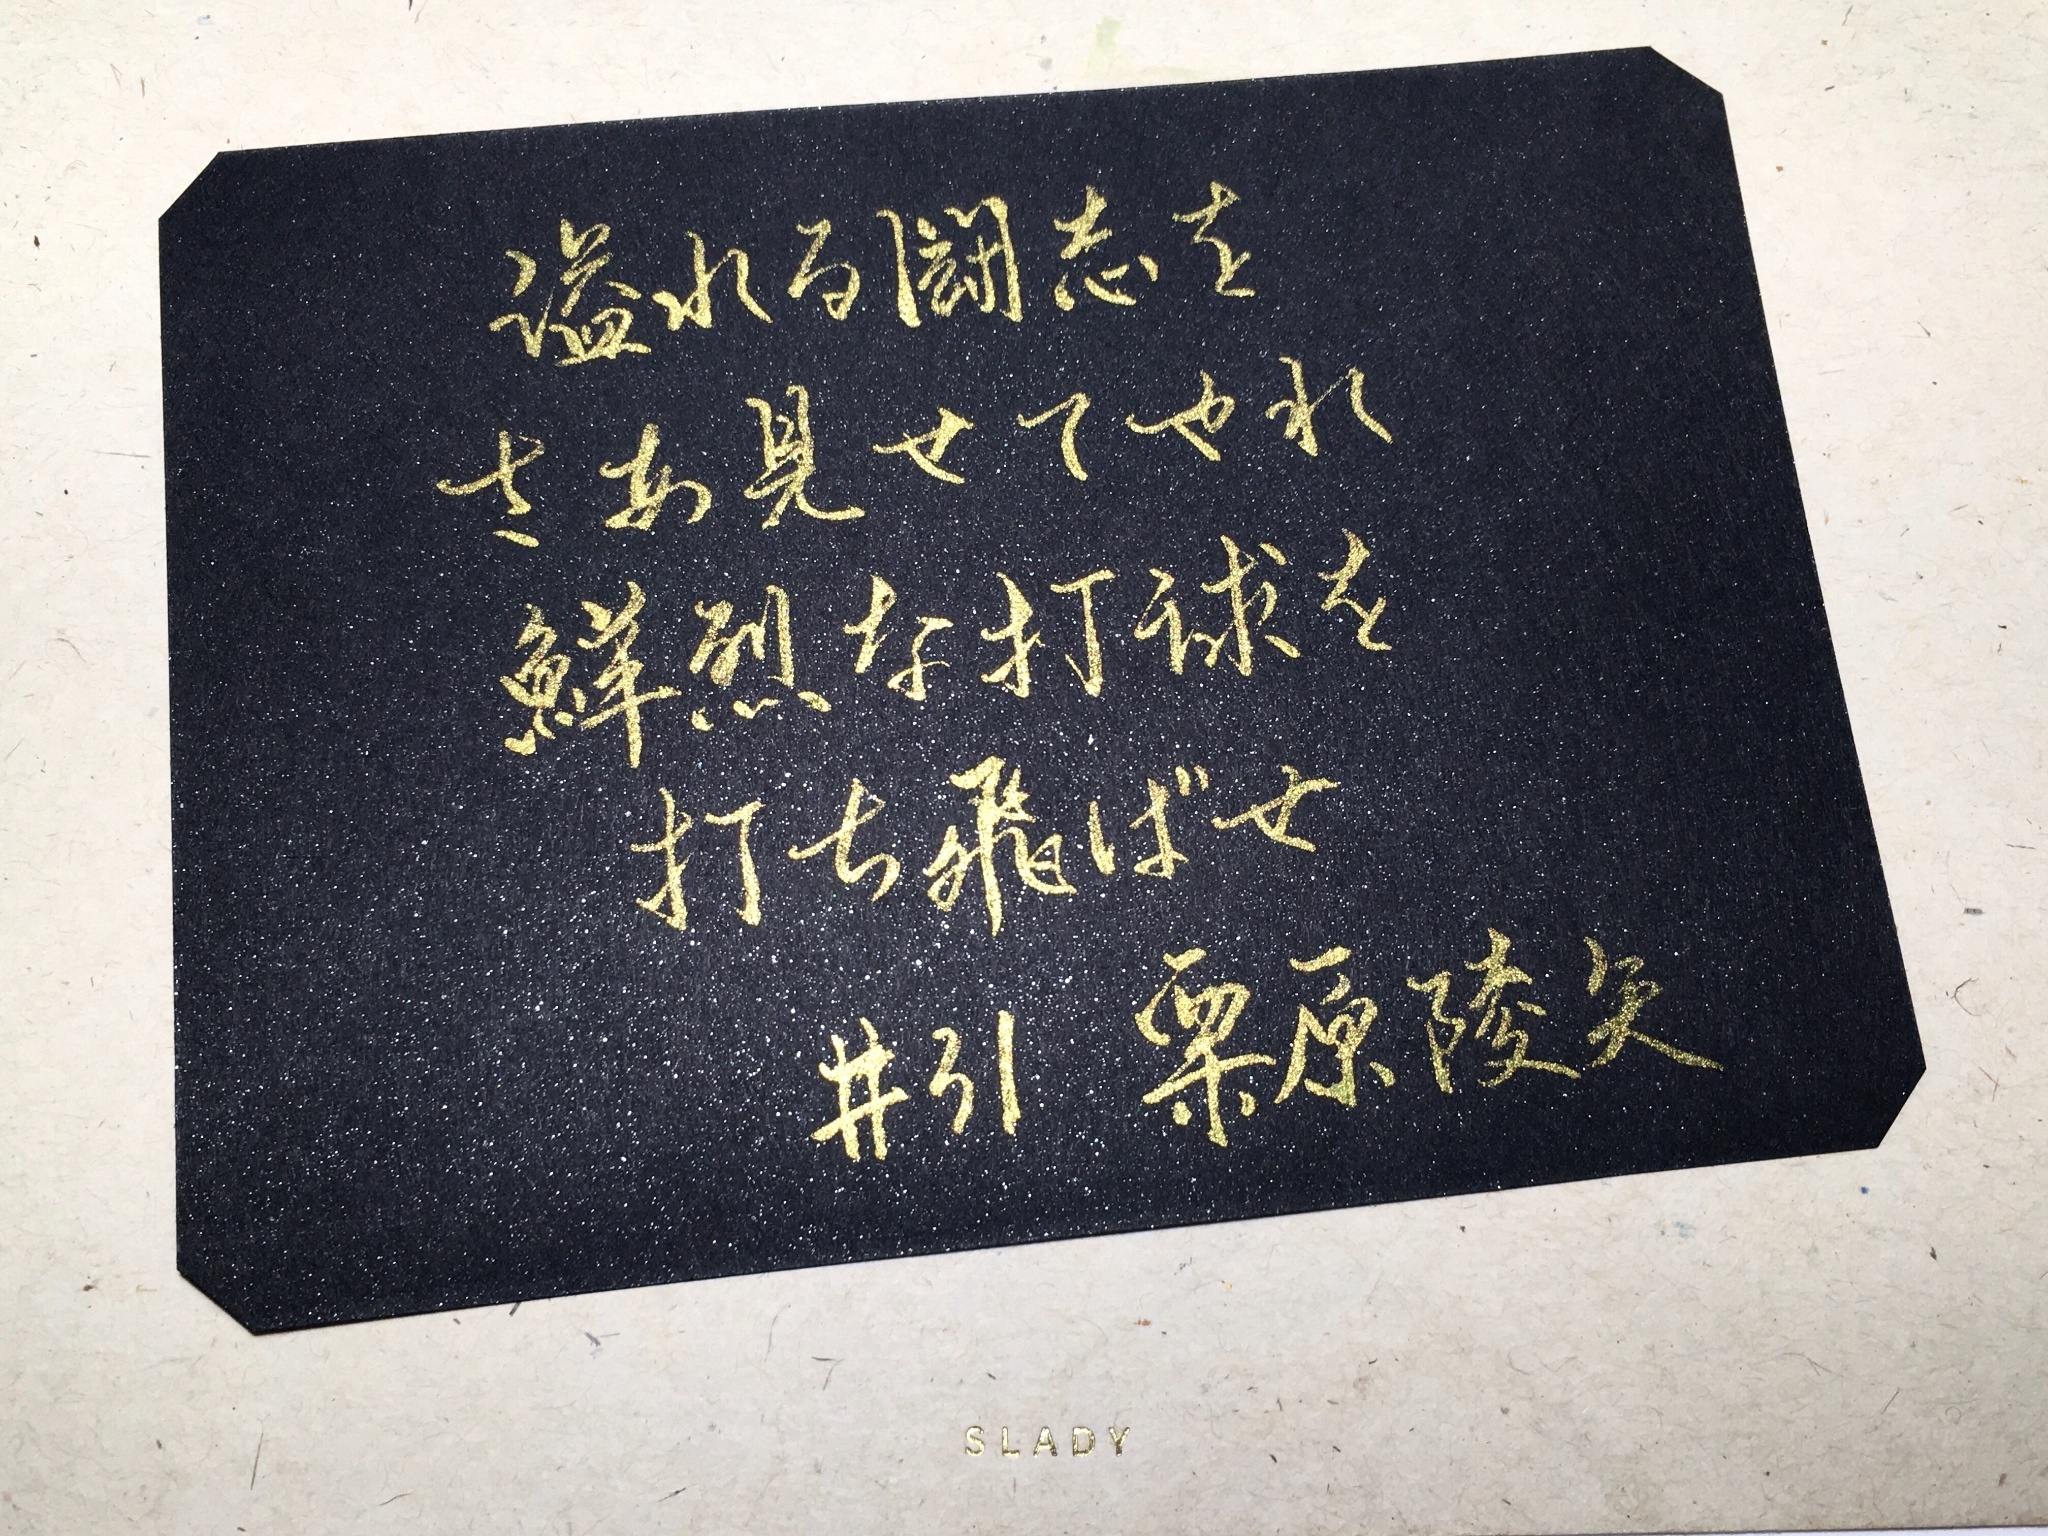 溢れる闘志を
さあ見せてやれ
鮮烈な打球を
打ち飛ばせ
#引 栗原陵矢
SLADY